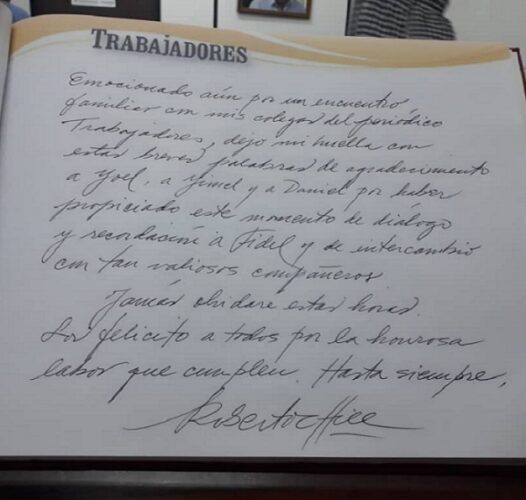 TRABAJADORES
Emocionado aún por un encuentro
familiar con mis colegas del periódico
Trabajadores, dejo mi huella con
estas breves palabras de agradecimiento
a Yoel, a Yimel y a Daniel por haber
propiciado este momento de diálogo
y recordación a Fidel y de intercambio
con tan valiosos compañeros
Jamás olvidaré estas horas.
Los felicito a todos por la honrosa
labor que cumplen. Hasta siempre,
Roberto